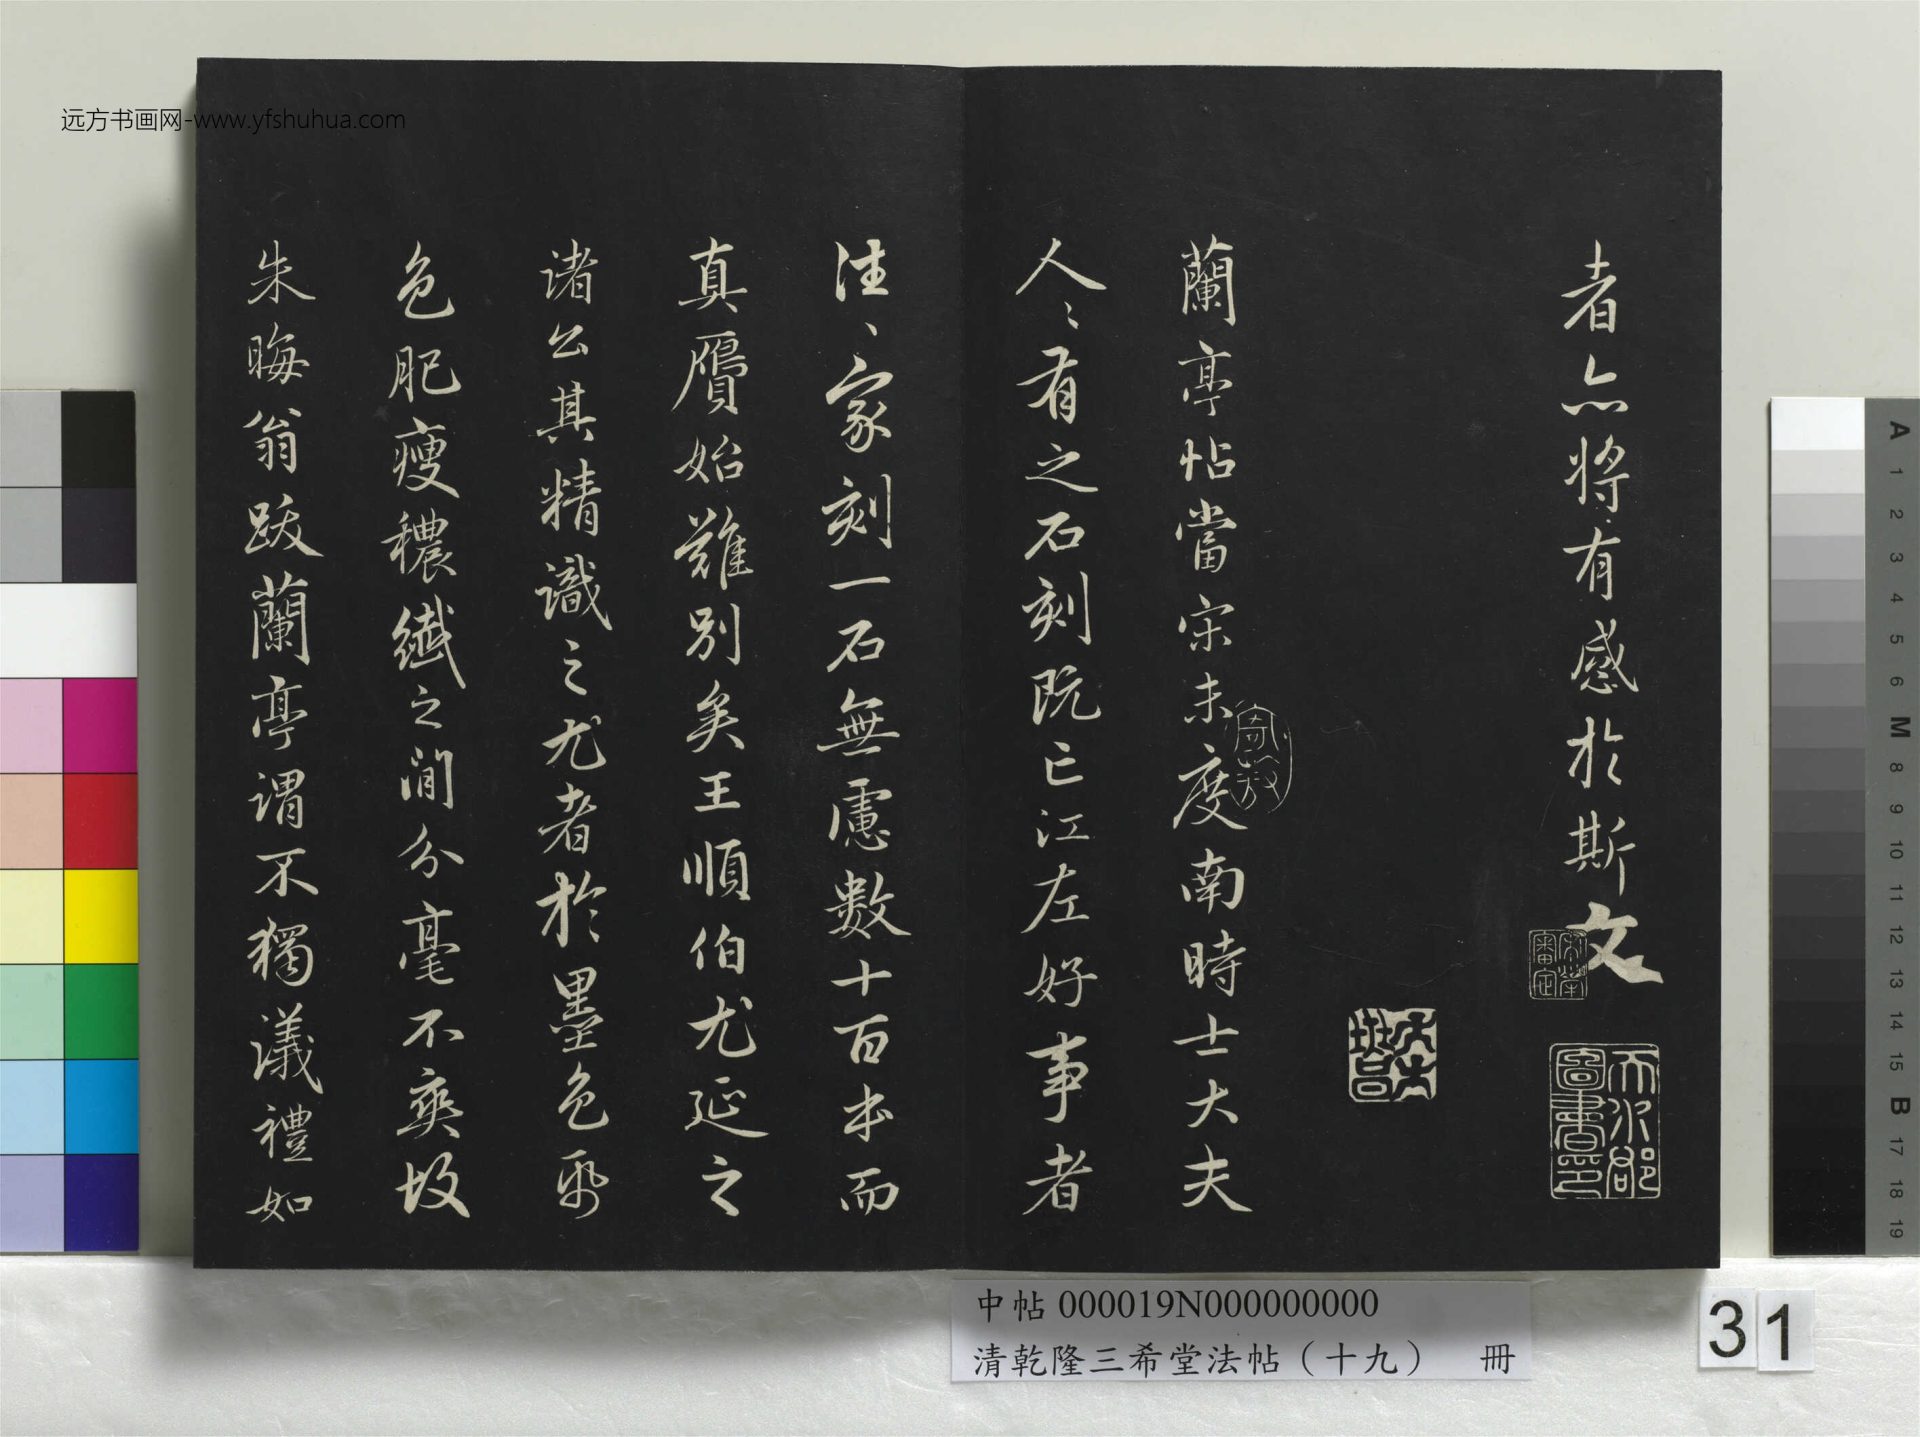 远方书画网-www.yfshuhua.com
者亦將有感於斯文
蘭亭帖當宋未度南時士大夫
人〻有之石刻既亡江左好事者
往〻家刻一石無慮數十百本而
真贋始難別矣王順伯尤延之
諸公其精識之尤者於墨色紙
色肥瘦穠纖之間分毫不爽故
朱晦翁跋蘭亭謂不獨議禮如
天水郡
圖書印
中帖 000019N000000000
清乾隆三希堂法帖（十九） 冊
31
A
1
2
3
4
5
6
M
8
9
10
11
12
13
14
15
B
17
18
19